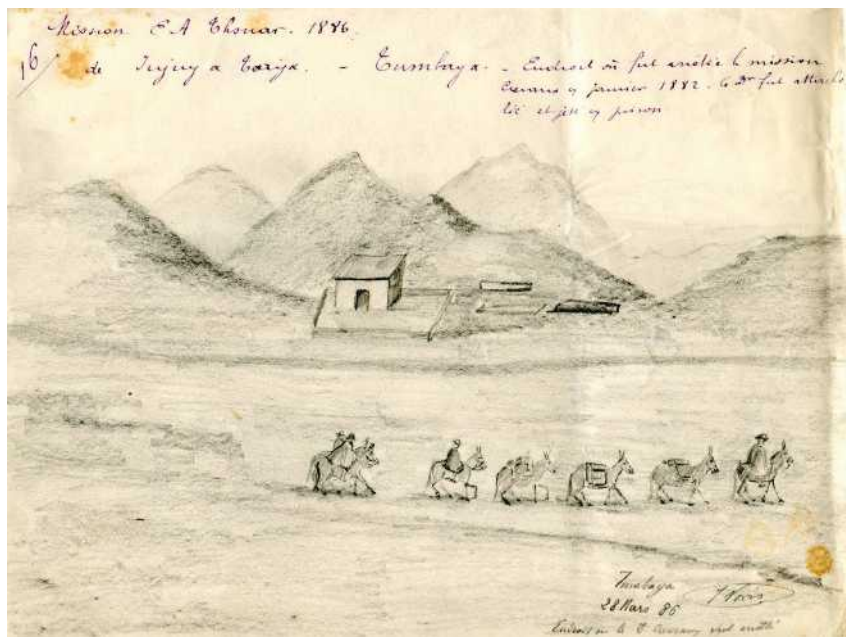 Mission E A Thouar. 1886.
16/ de Jujuy a Tarija. - Tumbaya. - Endroit où fut arrêtée la mission
Crevaux en janvier 1882. le Dr fut
lié et jeté en prison
Tumbaya
28 Mars 86
Endroit où le D. Crevaux fut arrêté